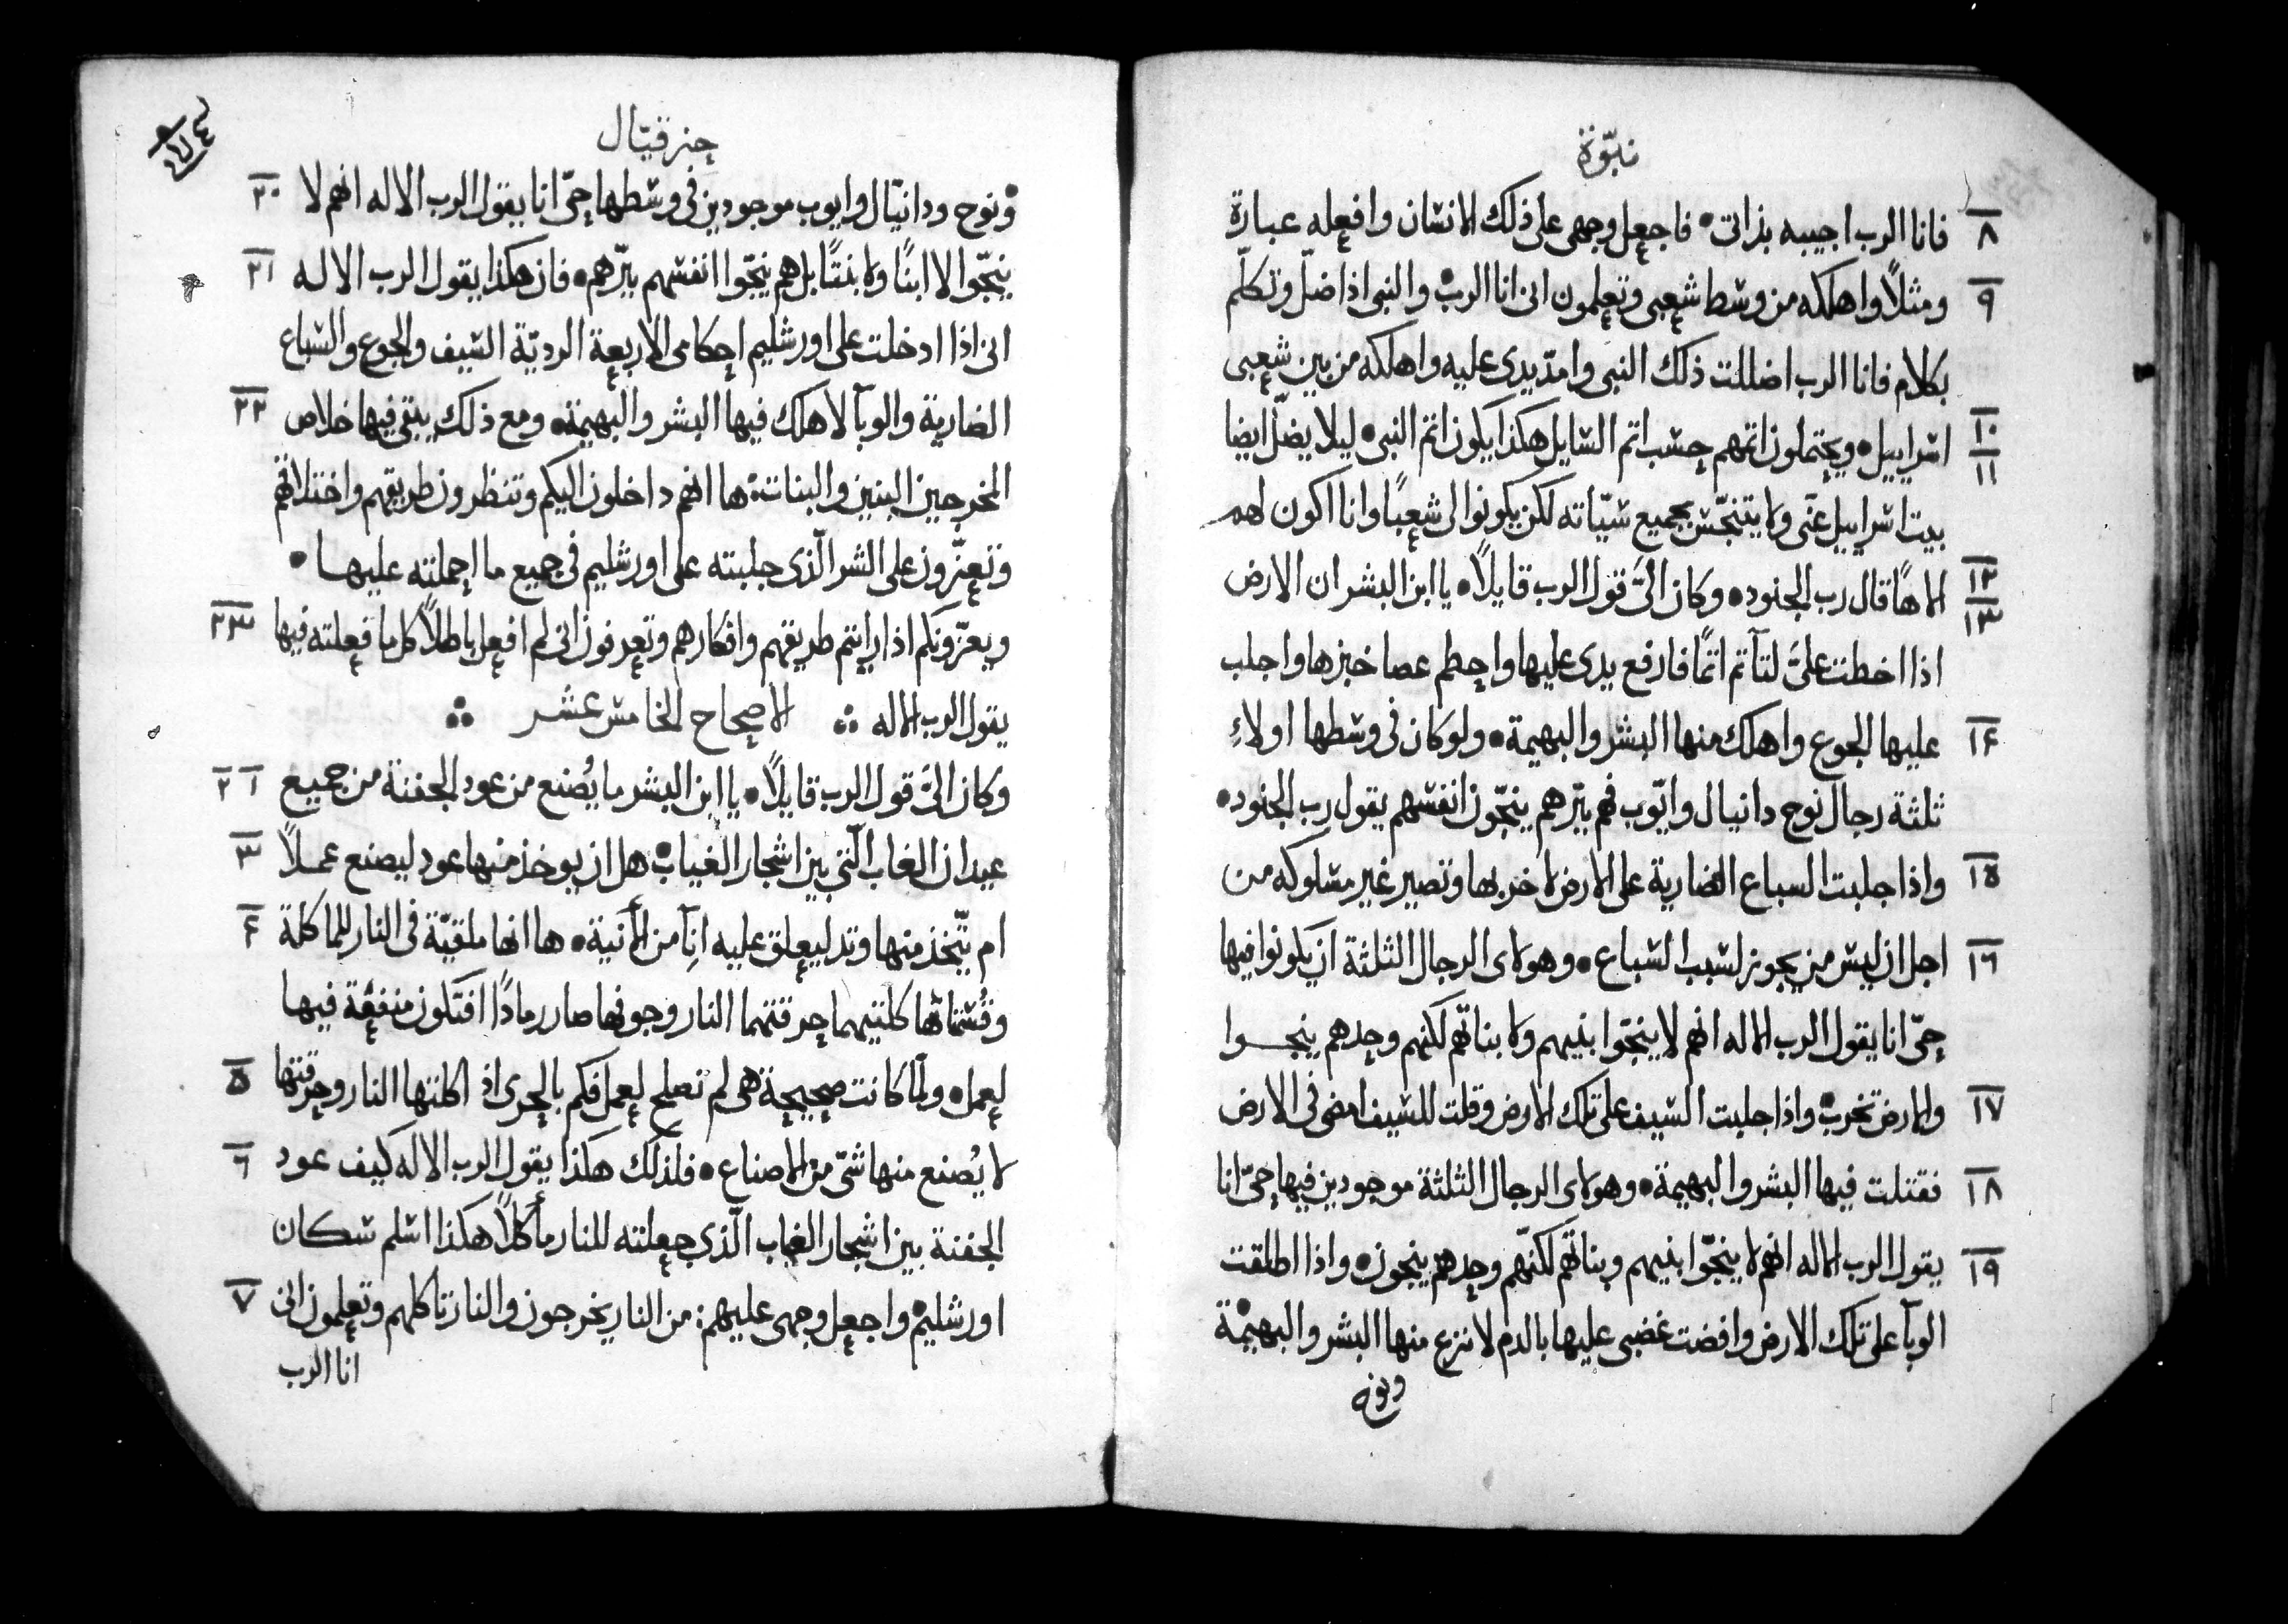 نبوّة
٨ فانا الرب اجيبه بذاتى • فاجعل وجهى على ذلك الانسان وافعله عبارة
٩ ومثلاً واهلكه من وسط شعبى وتعلمون انى انا الرب • والنبى اذا ضلّ وتكلّم
بكلام فانا الرب اضللت ذلك النبى وامدّ يدى عليه واهلكه من بين شعبى
١٠ ١١ اسراييل • ويحتملون اثمهم حسب اثم السايل هكذا يكون اثم النبى • ليلا يضلّ ايضا
بيت اسراييل عنّى ولا يتنجّس بجميع سيّاته لكن يكونوا لى شعبًا وانا اكون لهم
١٢ ١٣ الاهًا قال رب الجنود • وكان الىّ قول الرب قايلاً • يا ابن البشر ان الارض
اذا اخطت علىّ لتآثم اثمًا فارفع يدى عليها واحطم عصا خبزها واجلب
١٤ عليها الجوع واهلك منها البشر والبهيمة • ولو كان فى وسطها اولاءِ
ثلثة رجال نوح دانيال وايّوب فهم ببّرهم ينجّون انفسهم يقول رب الجنود •
١٥ واذا جلبت السباع الضارية على الارض لاخربها وتصير غير مسلوكه من
١٦ اجل ان ليس من يجوز لسبب السباع • وهولاى الرجال الثلثة ان يكونوا فيها
حىّ انا يقول الرب الاله انهم لا ينجّوا بنيهم ولا بناتهم لكنهم وحدهم ينجوا
١٧ والارض تخرب • واذا جلبت السيف على تلك الارض وقلت للسيف امضى فى الارض
١٨ فقتلت فيها البشر والبهيمة • وهولاى الرجال الثلثة موجودين فيها حىّ انا
١٩ يقول الرب الاله انهم لا ينجّوا بنيهم وبناتهم لكنّهم وحدهم ينجون • واذا اطلقت
الوبآ على تلك الارض وافضت غضبى عليها بالدم لانزع منها البشر والبهيمة •
ونوح
حزقيّال
٢٠ ونوح ودانيّال وايوب موجودين فى وسطها حىّ انا يقول الرب الاله انهم لا
٢١ ينجّوا لا ابنًا ولا بنتًا بل هم ينجّوا انفسهم ببّرهم • فان هكذا يقول الرب الاله
انى اذا ادخلت على اورشليم احكامى الاربعة الرديّة السيف والجوع والسباع
٢٢ الضارية والوبآ لاهلك فيها البشر والبهيمة • ومع ذلك يبقى فيها خلاص
المخرجين البنين والبنات • ها انهم داخلون اليكم وتنظرون طريقهم واختلاقهم
وتعزّون على الشر الّذى جلبته على اورشليم فى جميع ما احملته عليها •
٢٣ ويعزّونكم اذا رايتم طريقهم وافكارهم وتعرفون انى لم افعل باطلاً كل ما فعلته فيها
يقول الرب الاله ∴ الاصحاح الخامس عشر ∴
١ ٢ وكان الىّ قول الرب قايلاً • يا ابن البشر ما يُصنع من عود الجفنة من جميع
٣ عيدان الغاب الّتى بين اشجار الغياب • هل ان يوخذ منها عود ليصنع عملاً
٤ ام يتّخذ منها وتد ليعلق عليه انآ من الآنية • ها انها ملقيّة فى النار للماكلة
وقُسمَاتها كلتيهما حرقتهما النار وجوفها صار رمادًا افتكون منفعة فيها
٥ لعمل • ولمّا كانت صحيحة هى لم تصلح لعمل فكم بالحرى اذ اكلتها النار وحرقتها
٦ لا يُصنع منها شىّ من الاصناع • فلذلك هكذا يقول الرب الاله كيف عود
الجفنة بين اشجار الغاب الّذى جعلته للنار مأكلاً هكذا اسلم سكان
٧ اورشليم • واجعل وجهى عليهم : من النار يخرجون والنار تاكلهم وتعلمون انى
انا الرب